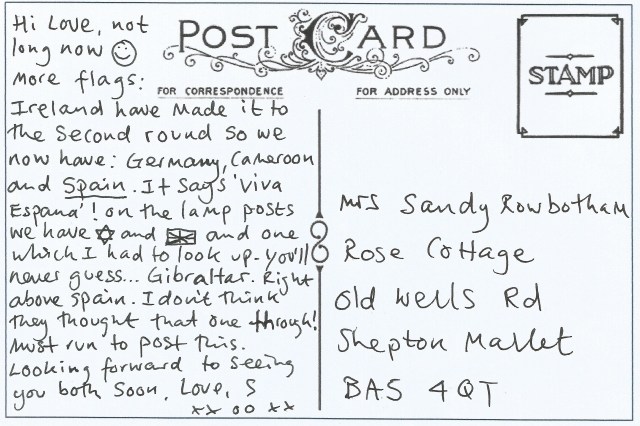 POST CARD
FOR CORRESPONDENCE
FOR ADDRESS ONLY
STAMP
Hi Love, not
long now ☺
More flags:
Ireland have made it to
the second round so we
now have: Germany, Cameroon
and Spain. It says 'Viva
Espana'! on the lamp posts
we have ✡ and 🇬🇧 and one
which I had to look up - you'll
never guess... Gibraltar. Right
above Spain. I don't think
they thought that one through!
Must run to post this.
Looking forward to seeing
you both soon, Love, S
xx oo xx
Mrs Sandy Rowbotham
Rose Cottage
Old Wells Rd
Shepton Mallet
BA5 4QT